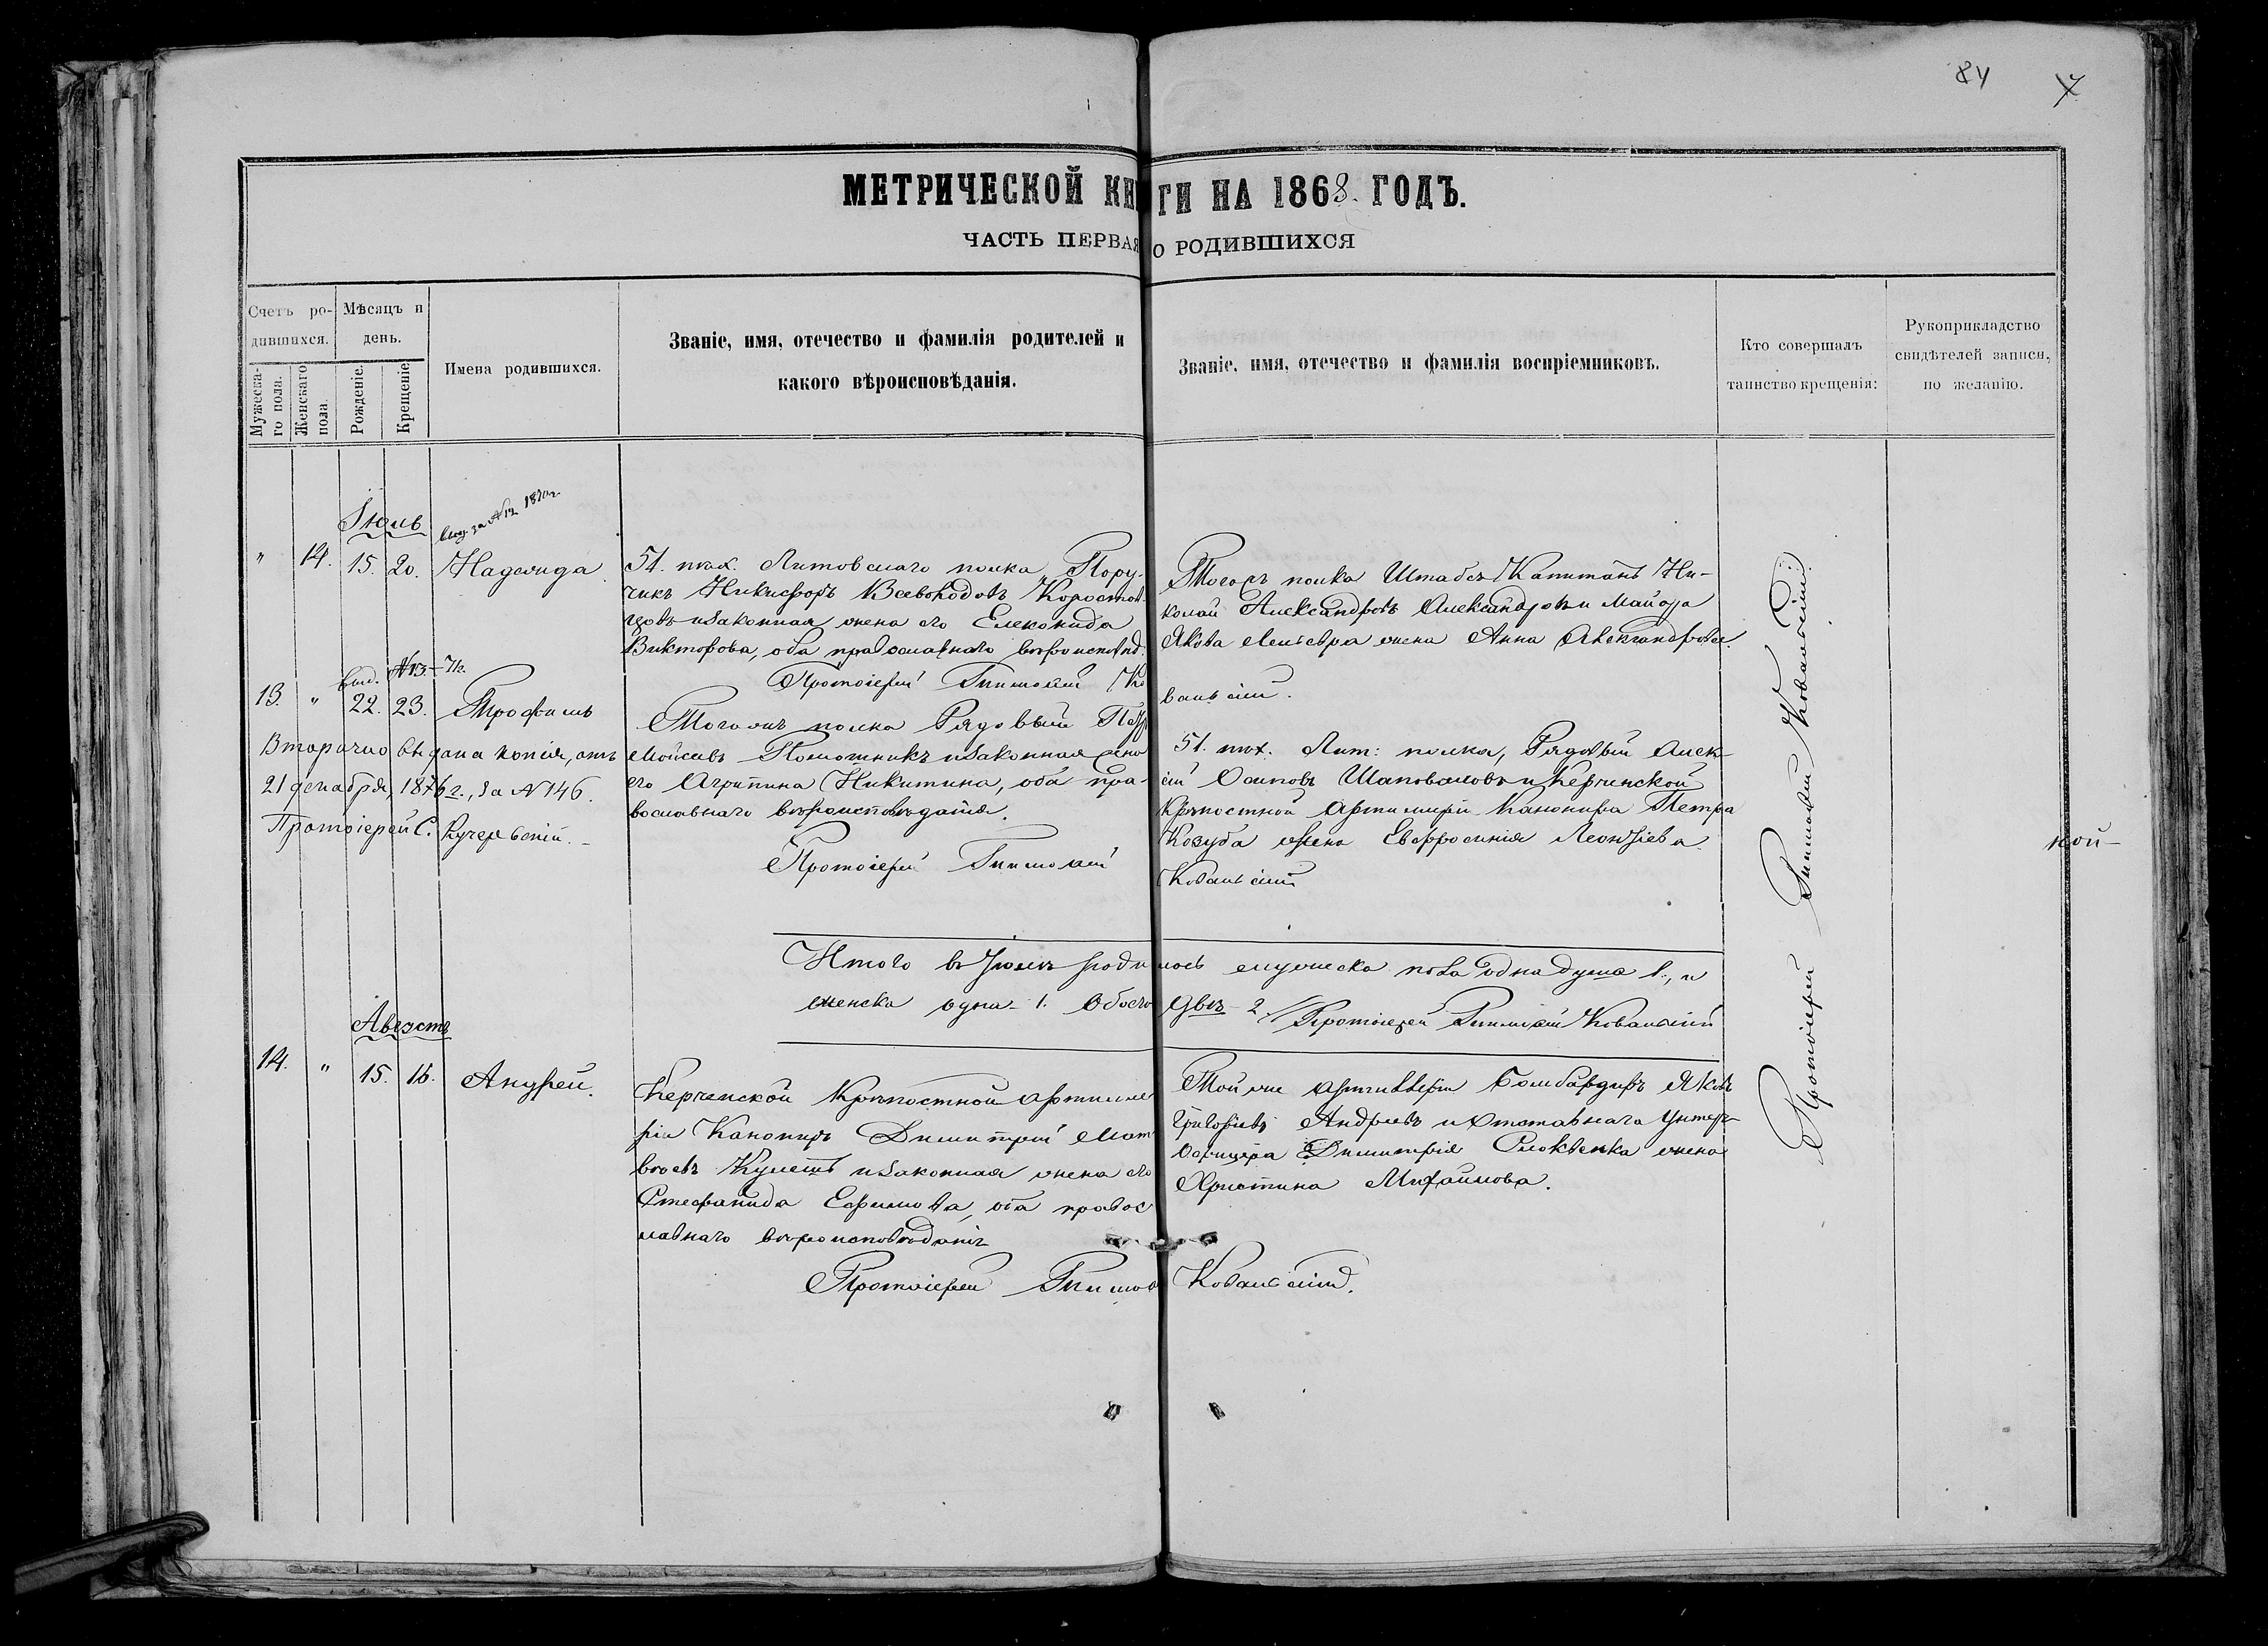 84
МЕТРИЧЕСКОЙ КНИГИ НА 1868. ГОДЪ.
ЧАСТЬ ПЕРВАЯ О РОДИВШИХСЯ
Счетъ родившихся.
Мужескаго пола.
Женскаго пола.
Мѣсяцъ и день.
Рожденіе.
Крещеніе.
Имена родившихся.
Званіе, имя, отечество и фамилія родителей и
какого вѣроисповѣданія.
Званіе, имя, отечество и фамилія воспріемниковъ.
Кто совершалъ
таинство крещенія:
Рукоприкладство
свидѣтелей записи,
по желанію.
Іюль
за № 12 1870 г.
" 14. 15 20. Надежда
51. пѣх. Литовскаго полка Пору-
чикъ Никифоръ Всеволодовъ Коростов
цовъ и законная жена его
Викторова, оба православнаго вѣроисповѣд.
Протоіерей Тимоѳей Ко
вальскій.
Тогожъ полка Штабсъ Капитанъ Ни-
колай Александровъ Александровъ и Майора
Якова жена Анна Александрова.
выд. №13
13. " 22. 23. Трофимъ
Вторично выдана копія, отъ
21 декабря, 1876 г., за №146.
Протоіерей С. Кучеревскій.
Тогожъ полка Рядовый Петръ
Мойсеевъ и законная жена
его Агрипина Никитина, оба пра-
вославнаго вѣроисповѣданія.
Протоіерей Тимоѳей
Ковальскій
51. пѣх. Лит: полка, Рядовый Алек-
сій Осиповъ Шаповаловъ и Керченской
Крѣпостной Артиллеріи Канонира Петра
Козуба жена Евфросинія Леонтіева
кой-
Итого въ Іюлѣ родилось мужеска пола одна душа 1, и
женска одна- 1. Обоего двѣ- 2. Протоіерей Тимоѳей Ковальскій
Августъ
14. " 15. 16. Андрей.
Керченской Крѣпостной Артилле
ріи Канониръ Димитрій Мат
вѣевъ Кулешъ и законная жена его
Стефанида Ефимова, оба правос
лавнаго вѣроисповѣданія
Протоіерей Тимоѳ Ковальскій.
Той же артиллеріи Бомбардиръ Яковъ
Григорьевъ Андреевъ и отставнаго Унтеръ-
Офицера Димитрія жена
Христина Михайлова.
Протоіерей Тимоѳей Ковальскій.